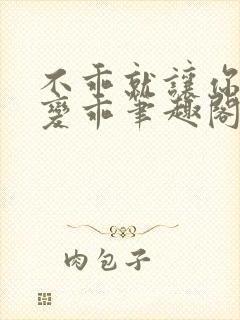 不乖就讓你
變乖筆趣閣
肉包子